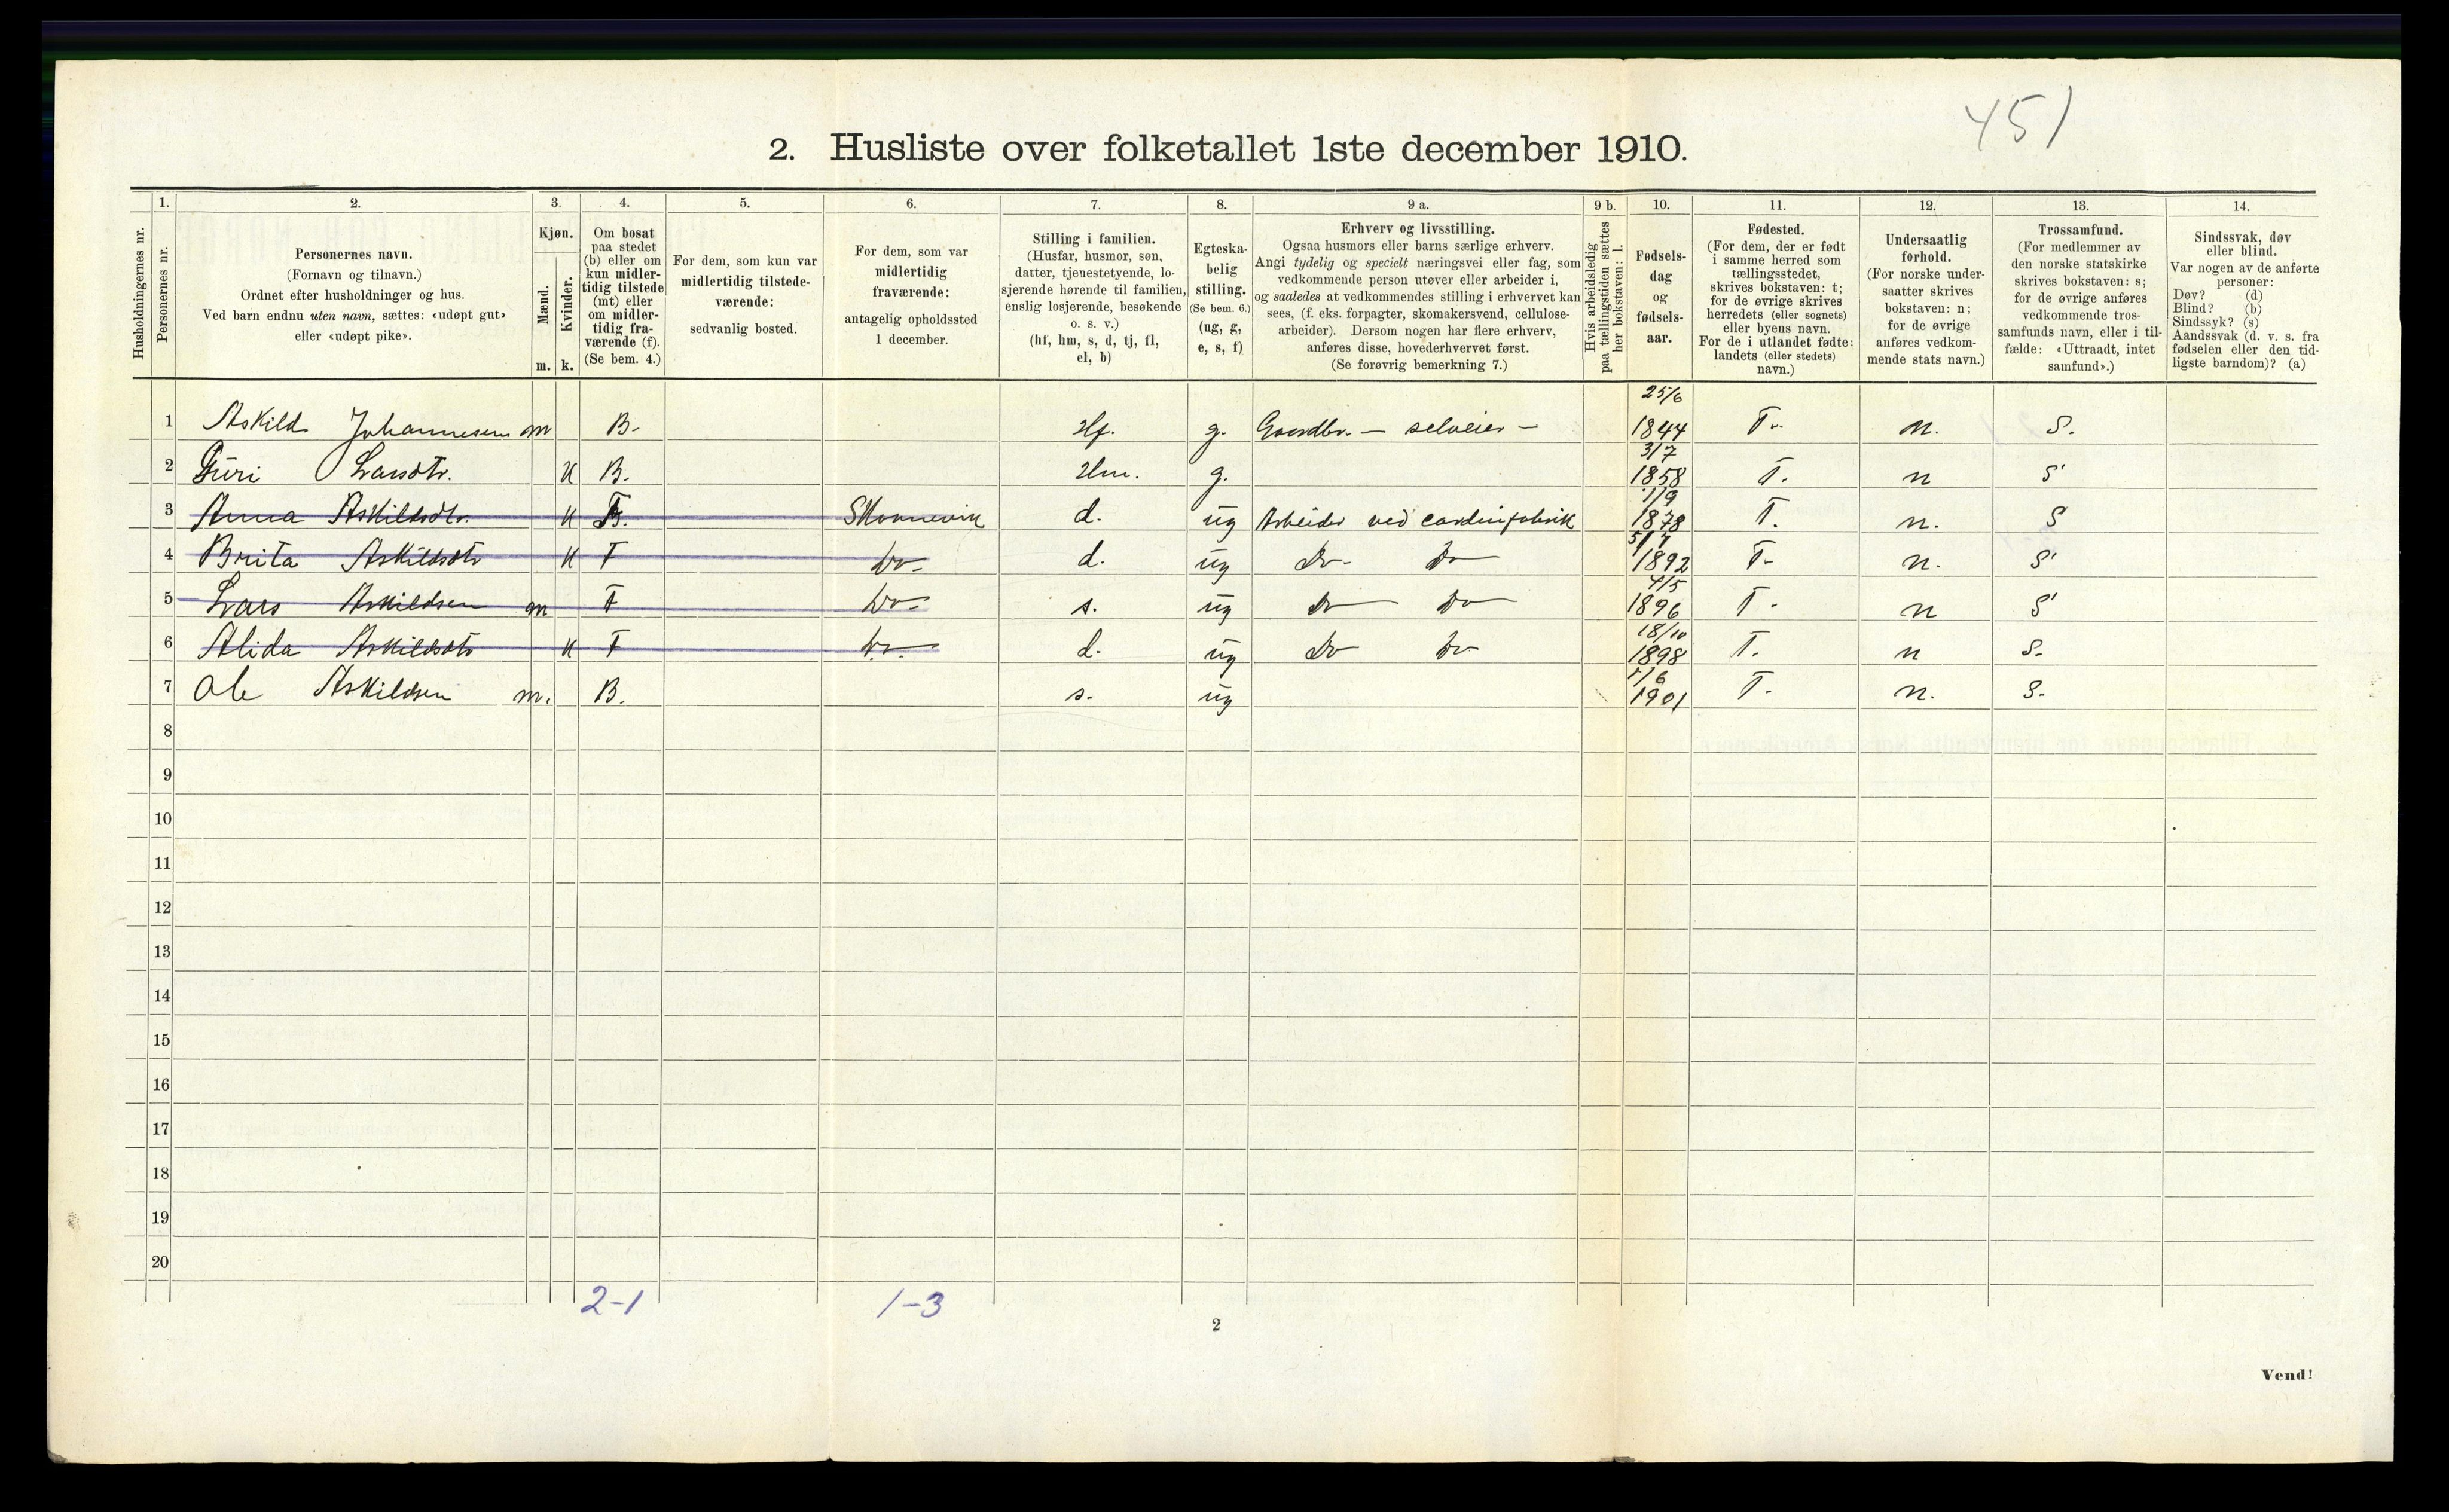 451
2. Husliste over folketallet 1ste december 1910.
Husholdningernes nr.
1. Personernes nr.
2. Personernes navn. (Fornavn og tilnavn.) Ordnet efter husholdninger og hus. Ved barn endnu uten navn, sættes: «udøpt gut» eller «udøpt pike».
3. Kjøn. Mænd. m. Kvinder. k.
4. Om bosat paa stedet (b) eller om kun midlertidig tilstede (mt) eller om midlertidig fraværende (f). (Se bem. 4.)
5. For dem, som kun var midlertidig tilstedeværende: sedvanlig bosted.
6. For dem, som var midlertidig fraværende: antagelig opholdssted 1 december.
7. Stilling i familien. (Husfar, husmor, søn, datter, tjenestetyende, losjerende hørende til familien, enslig losjerende, besøkende o. s. v.) (hf, hm, s, d, tj, fl, el, b)
8. Egteskabelig stilling. (Se bem. 6.) (ug, g, e, s, f)
9 a. Erhverv og livsstilling. Ogsaa husmors eller barns særlige erhverv. Angi tydelig og specielt næringsvei eller fag, som vedkommende person utøver eller arbeider i, og saaledes at vedkommendes stilling i erhvervet kan sees, (f. eks. forpagter, skomakersvend, cellulosearbeider). Dersom nogen har flere erhverv, anføres disse, hovederhvervet først. (Se forøvrig bemerkning 7.)
9 b. Hvis arbeidsledig paa tællingstiden sættes her bokstaven: l.
10. Fødselsdag og fødselsaar.
11. Fødested. (For dem, der er født i samme herred som tællingsstedet, skrives bokstaven: t; for de øvrige skrives herredets (eller sognets) eller byens navn. For de i utlandet fødte: landets (eller stedets) navn.)
12. Undersaatlig forhold. (For norske undersaatter skrives bokstaven: n; for de øvrige anføres vedkommende stats navn.)
13. Trossamfund. (For medlemmer av den norske statskirke skrives bokstaven: s; for de øvrige anføres vedkommende trossamfunds navn, eller i tilfælde: «Uttraadt, intet samfund».)
14. Sindssvak, døv eller blind. Var nogen av de anførte personer: Døv? (d) Blind? (b) Sindssyk? (s) Aandssvak (d. v. s. fra fødselen eller den tidligste barndom)? (a)
1 Askild Johannesen m B. Hf. g. Gaardbr. — selveier — 25/6 1844 T. n. S.
2 Guri Larsdtr. K B. Hm. g. 3/7 1858 T. n S
3 Anna Askildsdtr. K F. Skonnevik d. ug Arbeider ved cardinfabrik 1/9 1878 T. n. S
4 Brita Askildsdtr K F Do d. ug Do Do 5/7 1892 T. n. S
5 Lars Askildsen m F Do s. ug Do Do 4/5 1896 T. n S
6 Alida Askildsdtr K F Do d. ug Do Do 18/10 1898 T. n S.
7 Ole Askildsen m. B. s. ug 1/6 1901 T. n. S.
8
9
10
11
12
13
14
15
16
17
18
19
20
2-1 1-3
2
Vend!